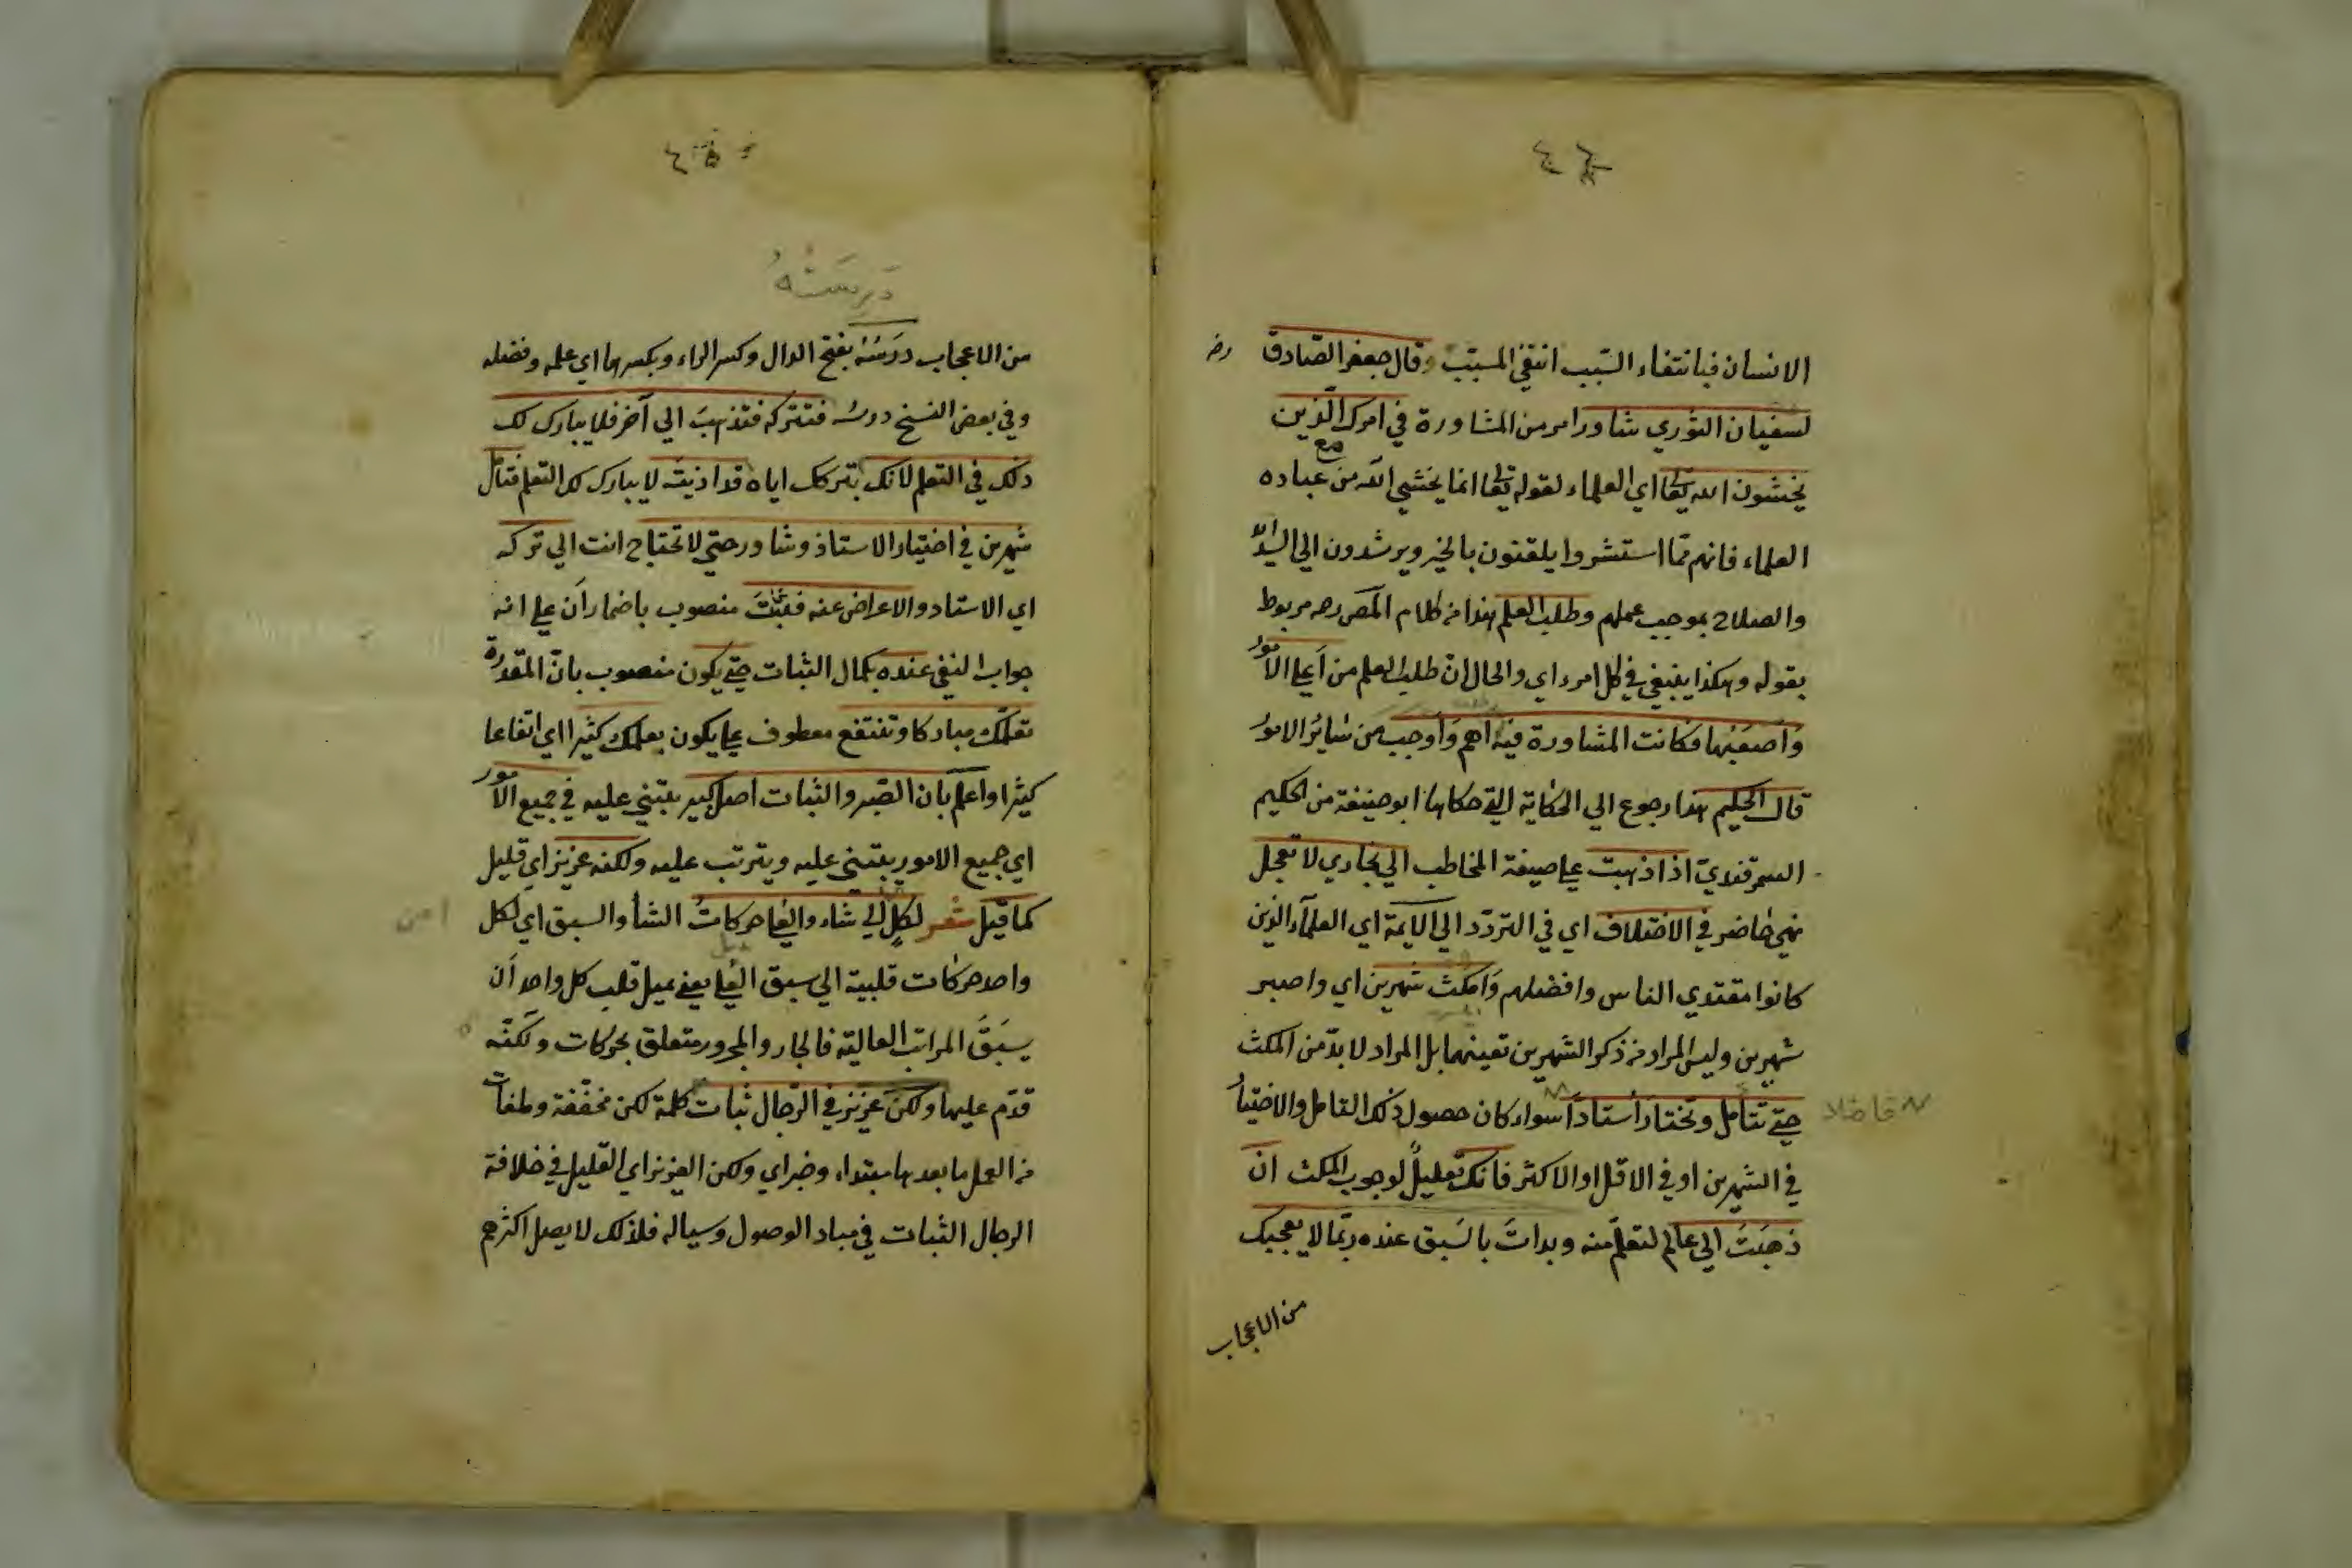 الانسان فبانتفاء السّبب انتفي المسبّب وقال جعفر الصّادق رضـ
لسفيان الثوري شاور امر من المشاورة في امرك الّذين
يخشون الله تعا اي العلماء لقوله تعا انما يخشي الله من عباده
العلماء فانهم ممّا استشروا يلقنون بالخير ويرشدون الي السّداد
والصلاح بموجب عملهم وطلب العلم هذا من كلام المص رحه مربوط
بقوله وهكذا ينبغي في كل امر اي والحال ان طلب العلم من اعلي الامور
واصعبها فكانت المشاورة فيه اهم واوجب من سائر الامور
قال الحكيم هذا رجوع الي الحكاية التي حكاها ابو حنيفة من الحكيم
السمرقندي اذا ذهبت علي صيغة المخاطب الي بخاري لا تعجل
نهي حاضر في الاختلاف اي في التردّد الي الايمة اي العلماء الذين
كانوا مقتدي الناس وافضلهم وامكث شهرين اي واصبر
شهرين وليس المراد من ذكر الشهرين تعينهما بل المراد لا بدّ من المكث
حتي تتأمل وتختار أستاذاً سواء كان حصول ذلك التامل والاختيار
فاضلا
في الشهرين او في الاقل او الاكثر فانك تعليلٌ لوجوب المكث ان
ذهبتَ الي عالم لتعلّم منه وبدأتَ بالسَبق عنده ربّما لا يعجبك
من الاعجاب
دَرِسَتُهُ
من الاعجاب درسُهُ بفتح الدال وكسر الراء وبكسرها اي علمه وفضله
وفي بعض النسخ درسُه فتتركه فتذهبَ الي آخر فلا يبارك لك
ذلك في التعلم لانك بتركك اياه قد اذيته لا يبارك لك التعلم فتأمل
شهرين في اختيار الاستاذ وشاور حتي لا تحتاج انت الي تركه
اي الاستاد والاعراض عنه فتثبتَ منصوب باضمار اَن علي انه
جواب النفي عنده بكمال الثبات حتي يكون منصوب بان المقدرة
تعلّمك مباركا وتنتفع معطوف علي يكون بعلمك كثيرا اي انتفاعا
كثيرا واعلم بان الصّبر والثبات اصل كبير يبتني عليه في جميع الامور
اي جميع الامور يبتني عليه ويترتب عليه ولكنه عزيز اي قليل
كما قيل شعر لكلٍ الي شاء والعلي حركاتُ الشأ والسبق اي لكل
واحد حركات قلبية الي سبق العلي يعني يميل قلب كل واحد اَن
يسبَقَ المراتب العالية فالجار والمجرور متعلق بحركات ولكنّه
قدّم عليها ولكن عزيز في الرّجال ثبات كلمة لكن مخفّفة وملغات
من العمل ما بعدها مبتداء وخبر اي ولكن العزيز اي القليل في خلافة
الرجال الثبات في مباد الوصول وسياله فلذلك لا يصل اكثرهم